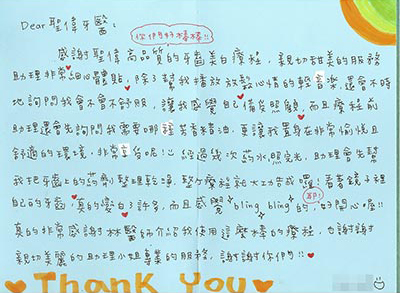 Dear 聖偉牙醫:
你們好棒棒!!
感謝聖偉高品質的牙齒美白療程,親切甜美的服務
助理非常細心體貼,除了幫我播放放鬆心情的輕音樂,還會不時
地詢問我會不會不舒服,讓我感覺自己備受照顧,而且療程前
助理還會先詢問我需要哪種芳香精油,更讓我置身在非常愉悅且
舒適的環境,非常享受呢!!經過幾次藥水照光完,助理會先幫
我把牙齒上的藥劑整理乾淨,整個療程就大功告成囉!看著鏡子裡
自己的牙齒,真的變白了許多,而且感覺bling bling的,好開心喔!!
耶!
真的非常感謝林醫師介紹我使用這麼棒的療程,也謝謝
親切美麗的助理小姐專業的服務,謝謝你們!!
THANK YOU